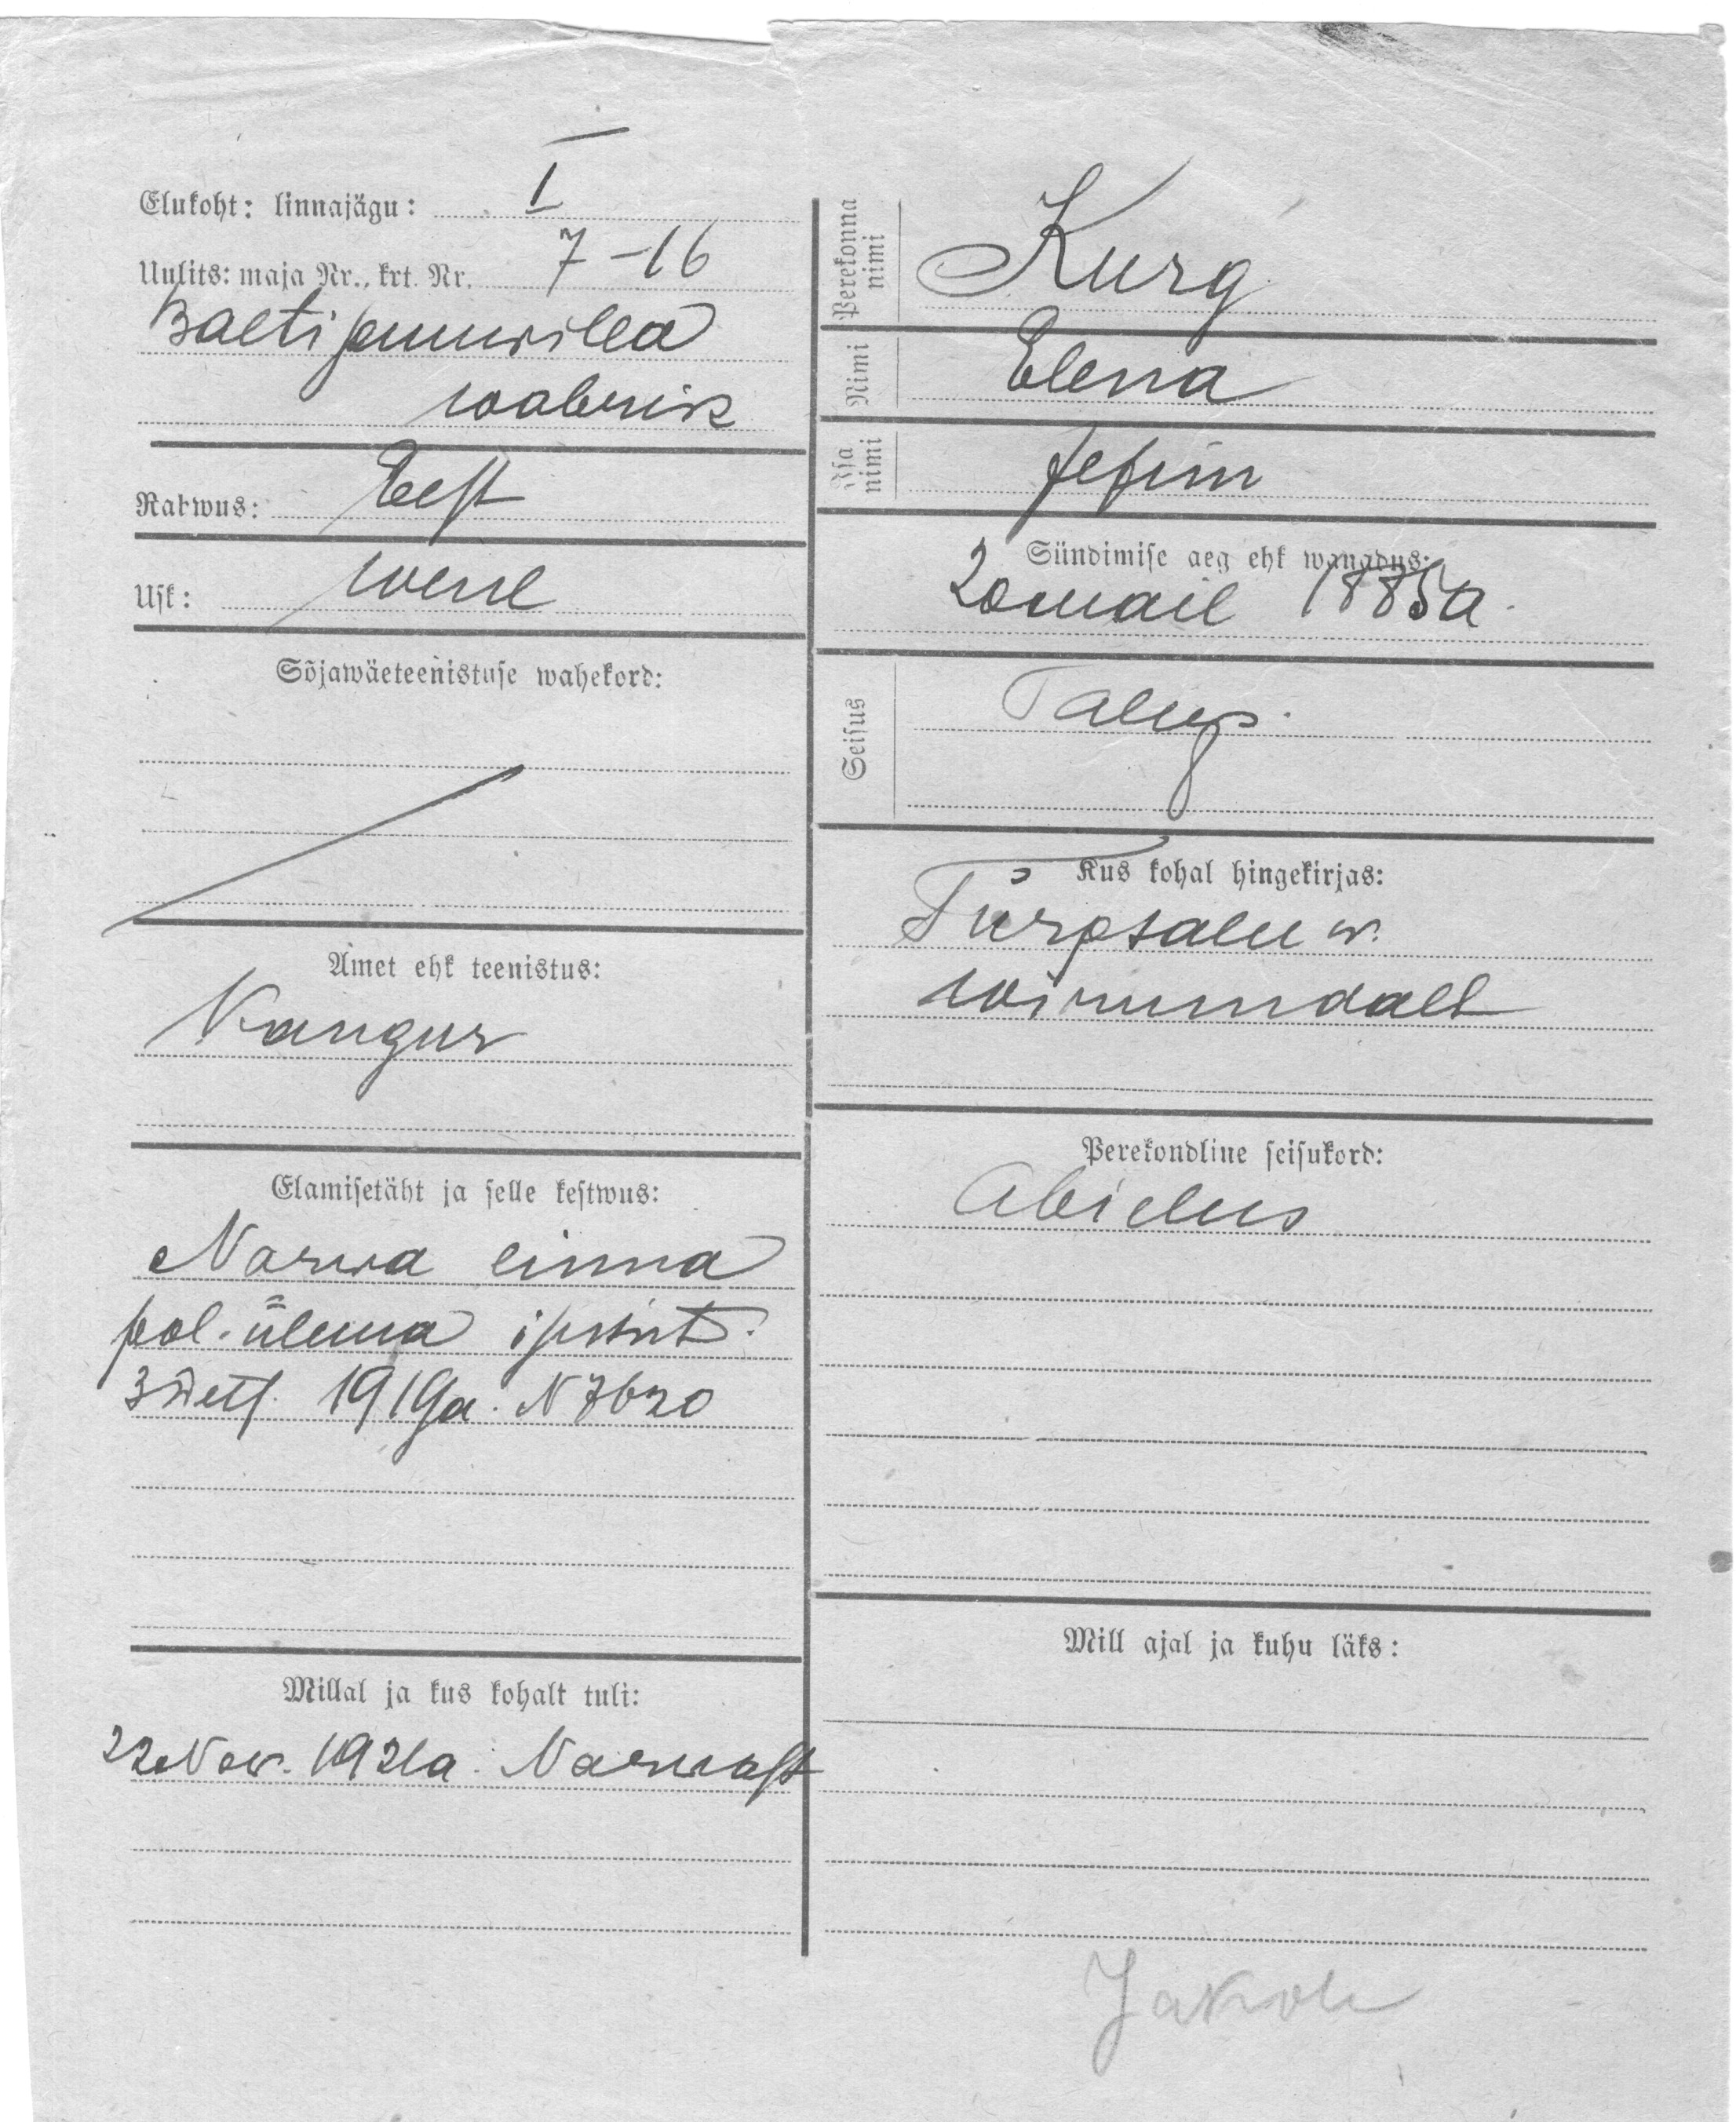 Elukoht: linnajägu: I
Uulits: maja Nr., krt. Nr. 7-16
Balti puuwilla
wabrik
Rahwus: Eest
Usk: wene
Sõjawäeteenistuse wahekord:
Amet ehk teenistus:
Kangur
Elamisetäht ja selle kestwus:
Narwa linna
pol. ülema
1919a. N 7620
Millal ja kus kohalt tuli:
22 Now. 1921a. Narwast
Perekonna nimi
Kurg
Nimi
Elena
Isa nimi
Jefim
Sündimise aeg ehk wanadus:
20 mail 1885a.
Seisus
Talup.
Kus kohal hingekirjas:
Türpsalu w.
wirumaalt
Perekondline seisukord:
Abielus
Mill ajal ja kuhu läks:
Jakob